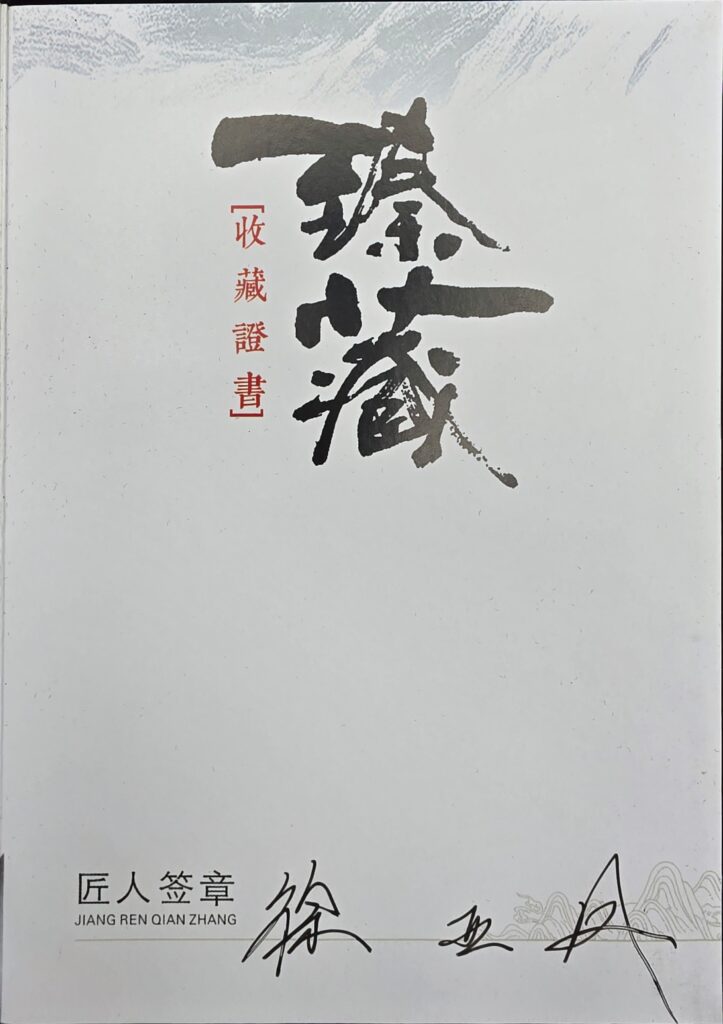 臻藏
[收藏證書]
匠人签章
JIANG REN QIAN ZHANG
徐亚凤